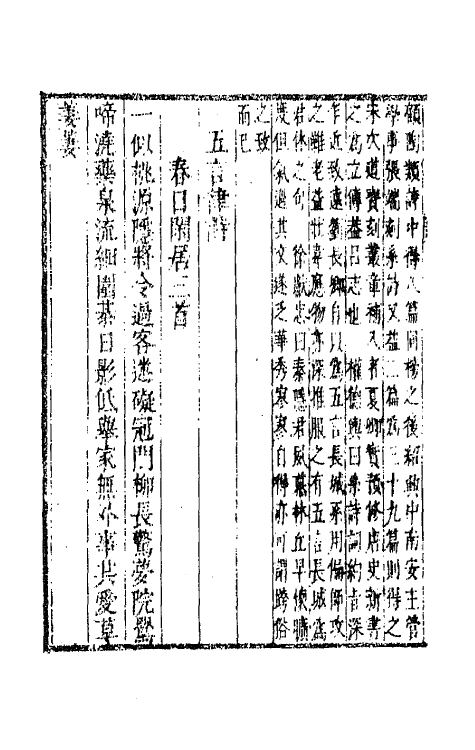 顧陶類詩中得八篇同梓之後紹興中南安主管
學事張端刻系詩又益二篇為三十九篇則得之
宋次道寶刻叢章補入者夏卿實預修唐史新書
之為立傳蓋呂志也 權德輿曰系詩詞約旨深
乍近致遠劉長卿自以為五言長城系用偏師攻
之雖老益壯韋應物亦深推服之有五言長城為
君休之句 徐獻忠曰秦隱君夙慕林丘早使曠
度但氣過其文遂乏華秀寥寥自得亦可謂跨俗
之致
而已
五言律詩
春日閑居三首
一似桃源隱將令過客迷礙冠門柳長驚夢院鶯
啼澆藥泉流細圍棊日影低舉家無外事共愛草
萋萋